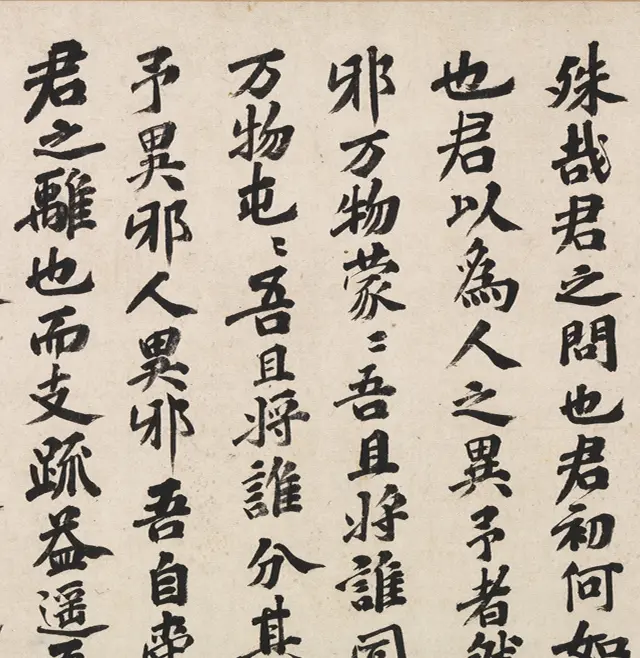 殊哉君之問也君初何如
也君以為人之異予者然
邪万物蒙〻吾且将誰同
万物屯〻吾且将誰分其
予異邪人異邪吾自喪
君之離也而支疏益遥